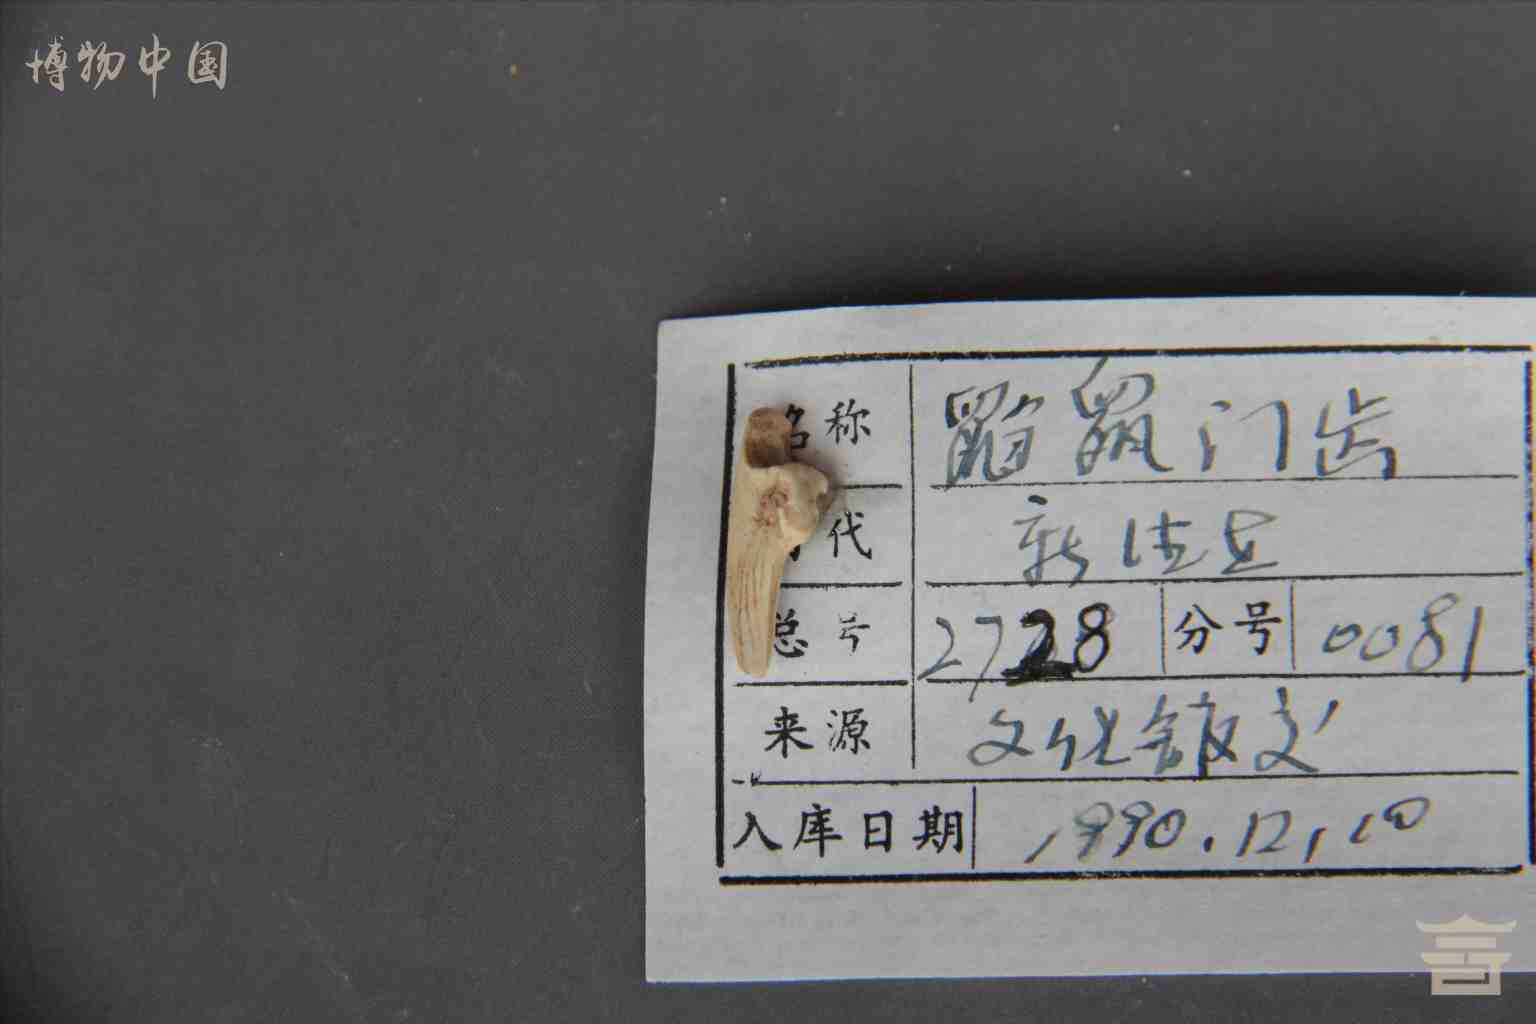 博物中国
名称 鼢鼠门齿
代
总号 2728 分号 0081
来源 文化馆交
入库日期 1990.12.10